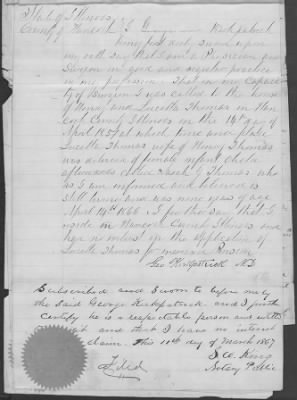 State of Illinois
County of Hancock } S S Kirkpatrick
being first duly sworn upon
my oath say that I am a Physician and
Surgeon in good and regular practice
in my profession That in my Capaci
ty of Surgeon I was called to the house
of Henry and Lucette Thomas in Han
cock County Illinois on the 14th day of
April 1857 at which time and place
Lucette Thomas wife of Henry Thomas
was delivered of female infant Child
afterwards called Sarah Thomas who
as I am informed and believe is
still living and was nine years of age
April 14th 1866 I further say that I
reside in Hancock County Illinois and
have no interest in the application of
Lucette Thomas for increased Pension
Geo Kirkpatrick M.D.
Subscribed and Sworn to before me by
the said George Kirkpatrick and I further
certify he is a respectable person and
and that I have no interest
claim. This 11th day of March 1867
S W King
Filed Notary Public